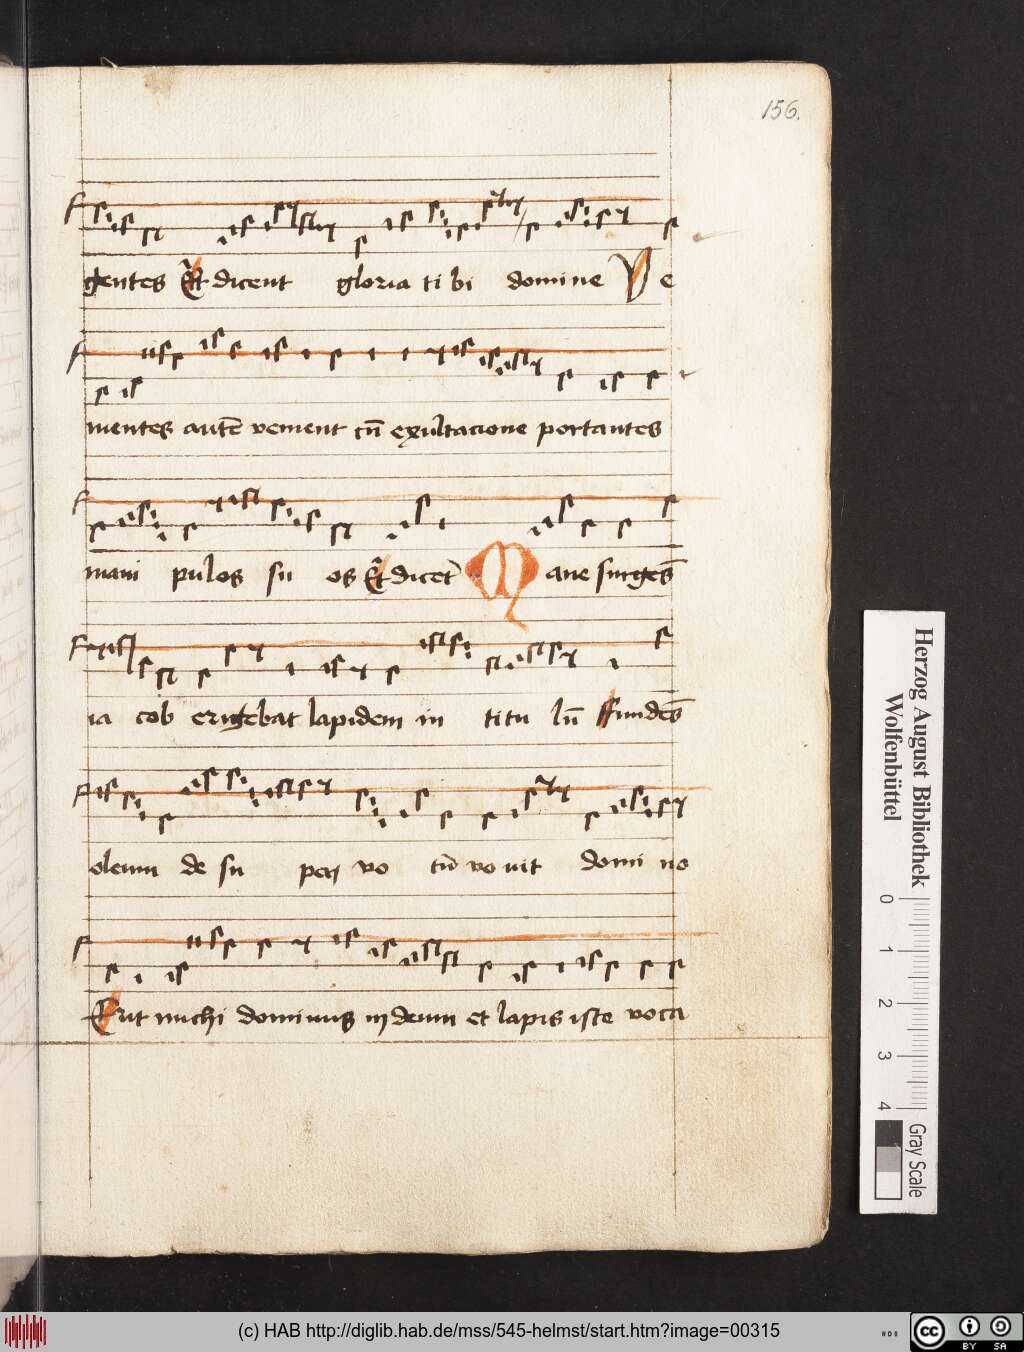 156.
gentes Et dicent gloria ti bi domine Ve
nientes autē venient cū exultacione portantes
mani pulos su os Et dicēt Mane surgēs
ia cob erigebat lapidem in titu lū ffundēs
oleum de su per vo tū vo uit domi no
Erit michi dominus in deum et lapis iste voca
Herzog August Bibliothek
Wolfenbüttel
0 1 2 3 4
Gray Scale
(c) HAB http://diglib.hab.de/mss/545-helmst/start.htm?image=00315
cc BY SA